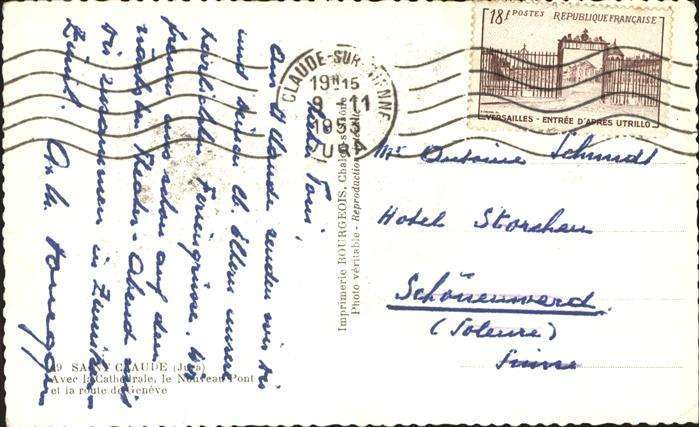 18f POSTES REPUBLIQUE FRANÇAISE
VERSAILLES - ENTRÉE D'APRÈS UTRILLO
CLAUDE-SUR-BIENNE
19H15
9 - 11
1953
JURA
Mr Antoine Schmidt
Hotel Storchen
Schönenwerd
(Soleure)
Suisse
Lieber Toni,
Aus St Claude senden wir Dir
und deinen lb. Eltern unsere
herzlichsten Feriengrüsse. Wir
freuen uns schon auf den
nächsten Theater-Abend mit
Dir zusammen in
Zürich.
Imprimerie BOURGEOIS, Chalon-s-Saône
Photo véritable - Reproduction
9 SAINT CLAUDE (Jura)
Avec la Cathédrale, le Nouveau Pont
et la route de Genève